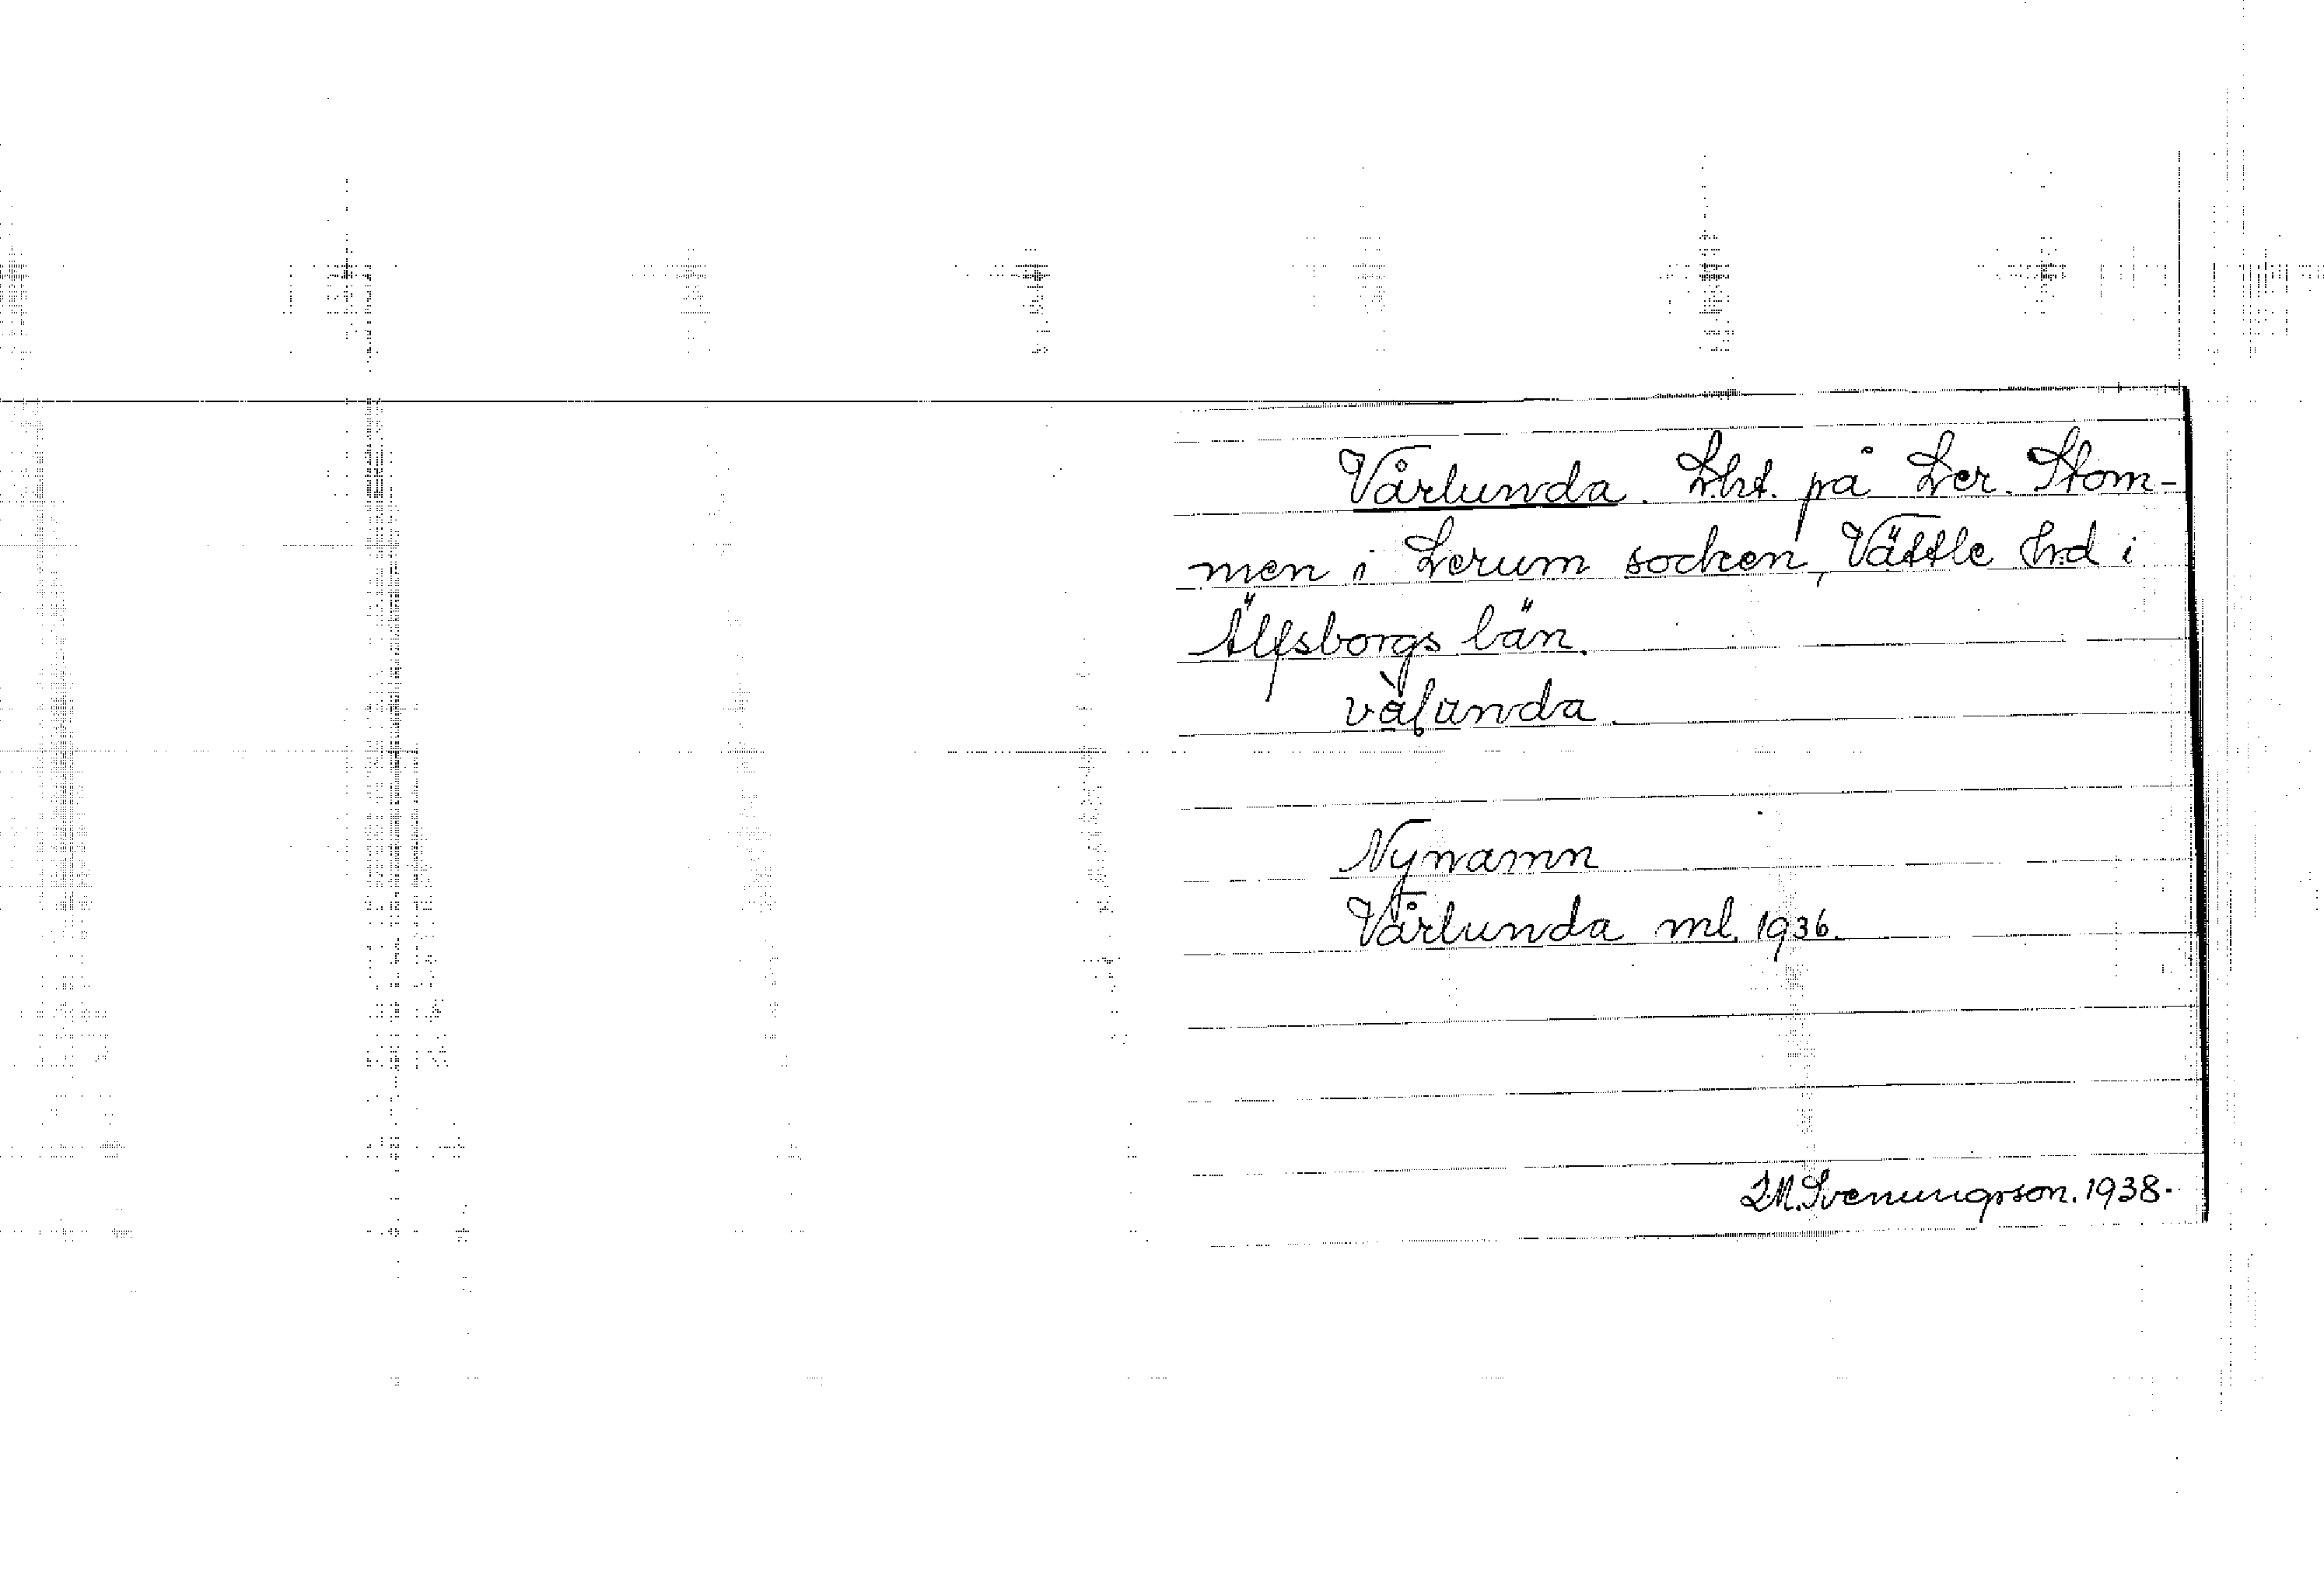 Vårlunda. Lht. på Ler. Stom-
men i Lerum socken, Vättle hd i
Älfsborgs län.
Nynamn
Vårlunda ml. 1936.
I.M. Svenungson. 1938.